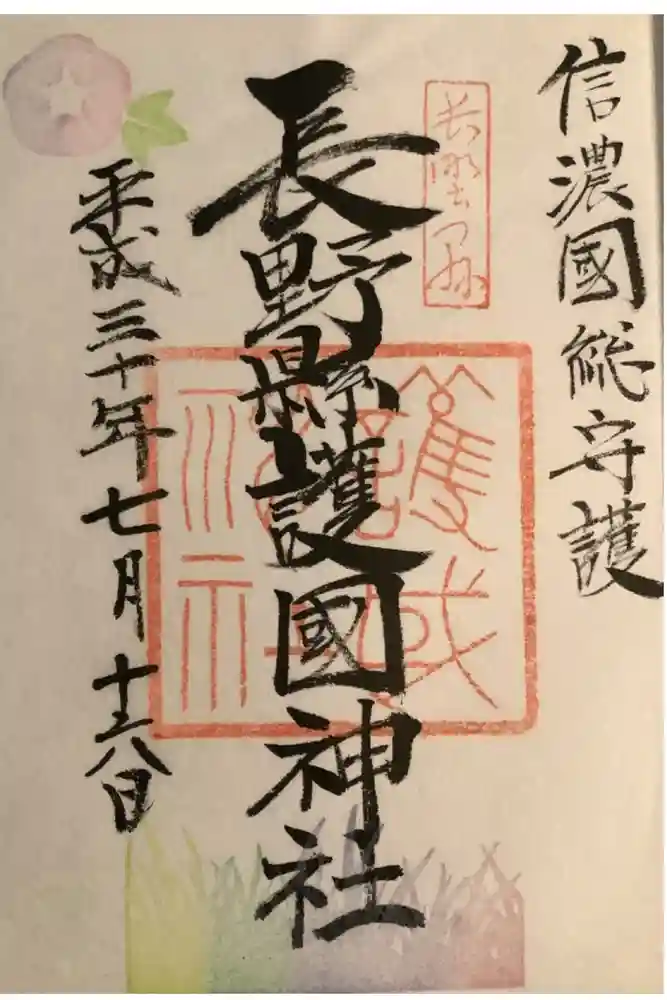 信濃國総守護
長野縣
長野縣護國神社
平成三十年七月十六日